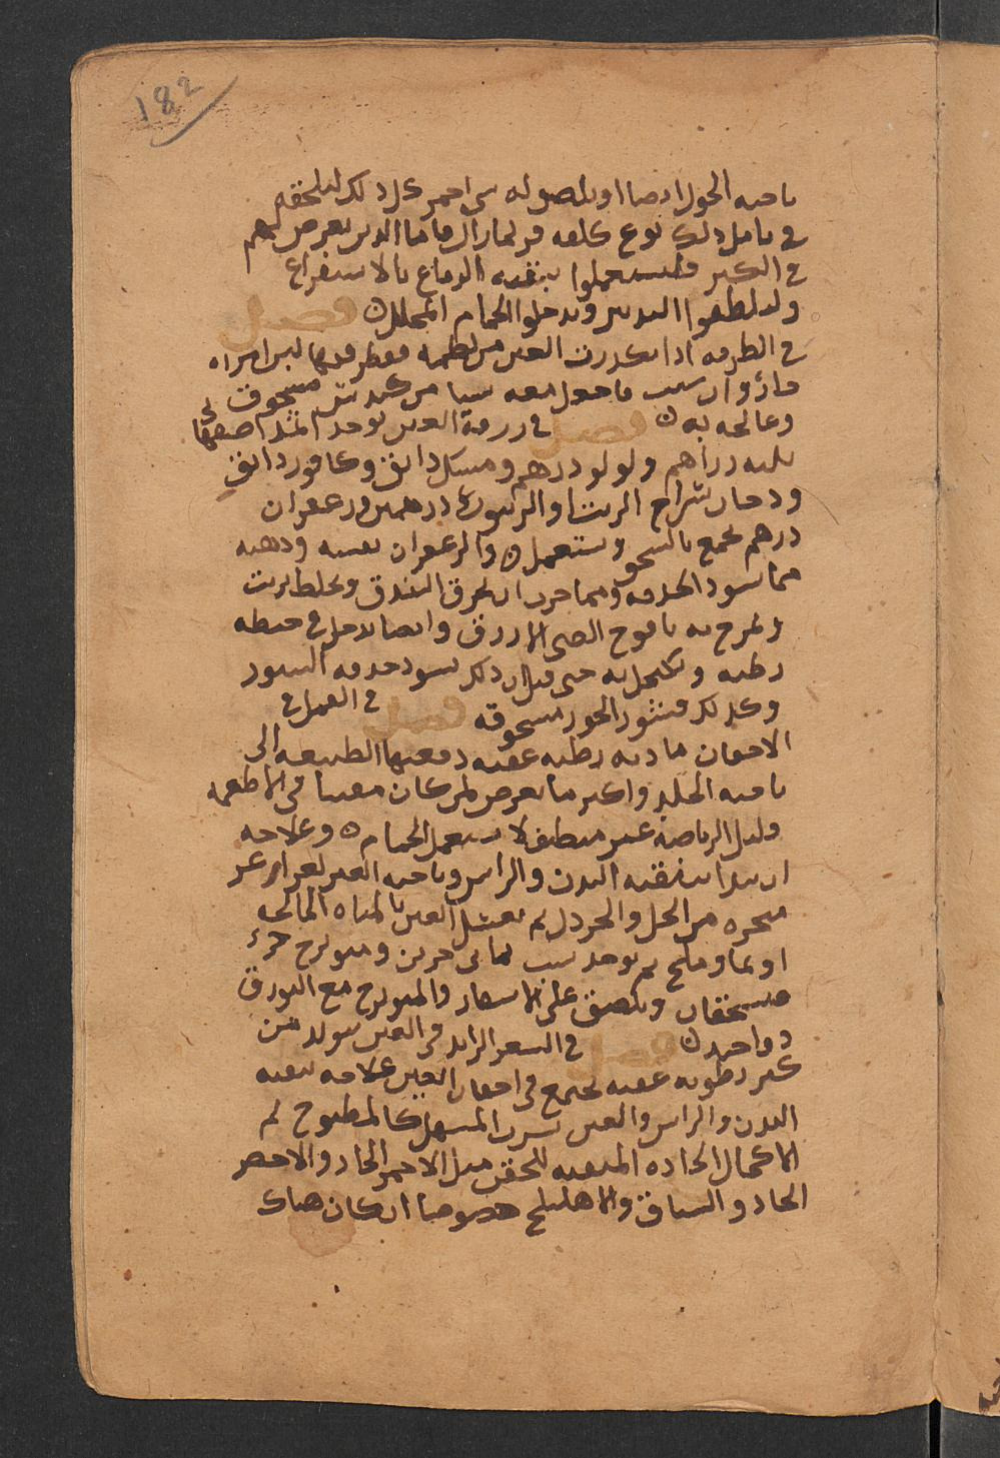 182
ناحية الحول ايضا او يلصق له شي احمر كل ذلك ليلحقه
في تامل ذلك نوع كلفه فربما زال فاما الذين يعرض لهم
في الكبر فليستعملوا تنقية الدماغ بالاستفراغ
وليلطفوا التدبير ويدخلوا الحمام المحلل ن فصل
في الطرفه اذا تكدرت العين من لطمه فقطر فيها لبن امراه
حار وان شيت فاجعل معه شيا من كندس مسحوق
وعالجه به ن فصل في زرقة العين يوخذ اثمد اصفهاني
ثلثه دراهم ولولو درهم ومسك دانق وكافور دانق
ودخان سراج الزيت او الزنبق درهمين وزعفران
درهم يجمع بالسحق ويستعمل ن والزعفران نفسه ودهنه
مما يسود الحدقه ومما جرب ان يحرق البندق ويخلط بزيت
ويمرخ به يافوخ الصبي الازرق وايضا يدخل في حنظله
رطبه ويكتحل به حتى قيل ان ذلك يسود حدقه السنور
وكذلك قشور الجوز مسحوقه فصل في القمل في
الاجفان مادته رطبه عفنه دفعتها الطبيعه الى
ناحيه الجلد واكثر ما يعرض لمن كان مفننا في الاطعمه
وقليل الرياضه غير متنظف لا يستعمل الحمام ن وعلاجه
ان تبدا بتنقيه البدن والراس وناحيه العين لغراغر
متخذه من الخل والخردل ثم تغسل العين بالمياه المالحه
او بما وملح ثم يوخذ شب يماني جزين وميويزج جزء
يسحقان ويلصق على الاشفار والميويزج مع البورق
دوا جيد ن فصل في الشعر الزايد في العين يتولد من
كثر رطوبه عفنه تجتمع في اجفان العين علاجه تنقيه
البدن والراس والعين بشرب المسهل كالمطبوخ ثم
الاكحال الحاده المنقيه للجفن مثل الاحمر الحاد والاخضر
الحاد والسياق والاهليلج خصوصا ان كان هناك